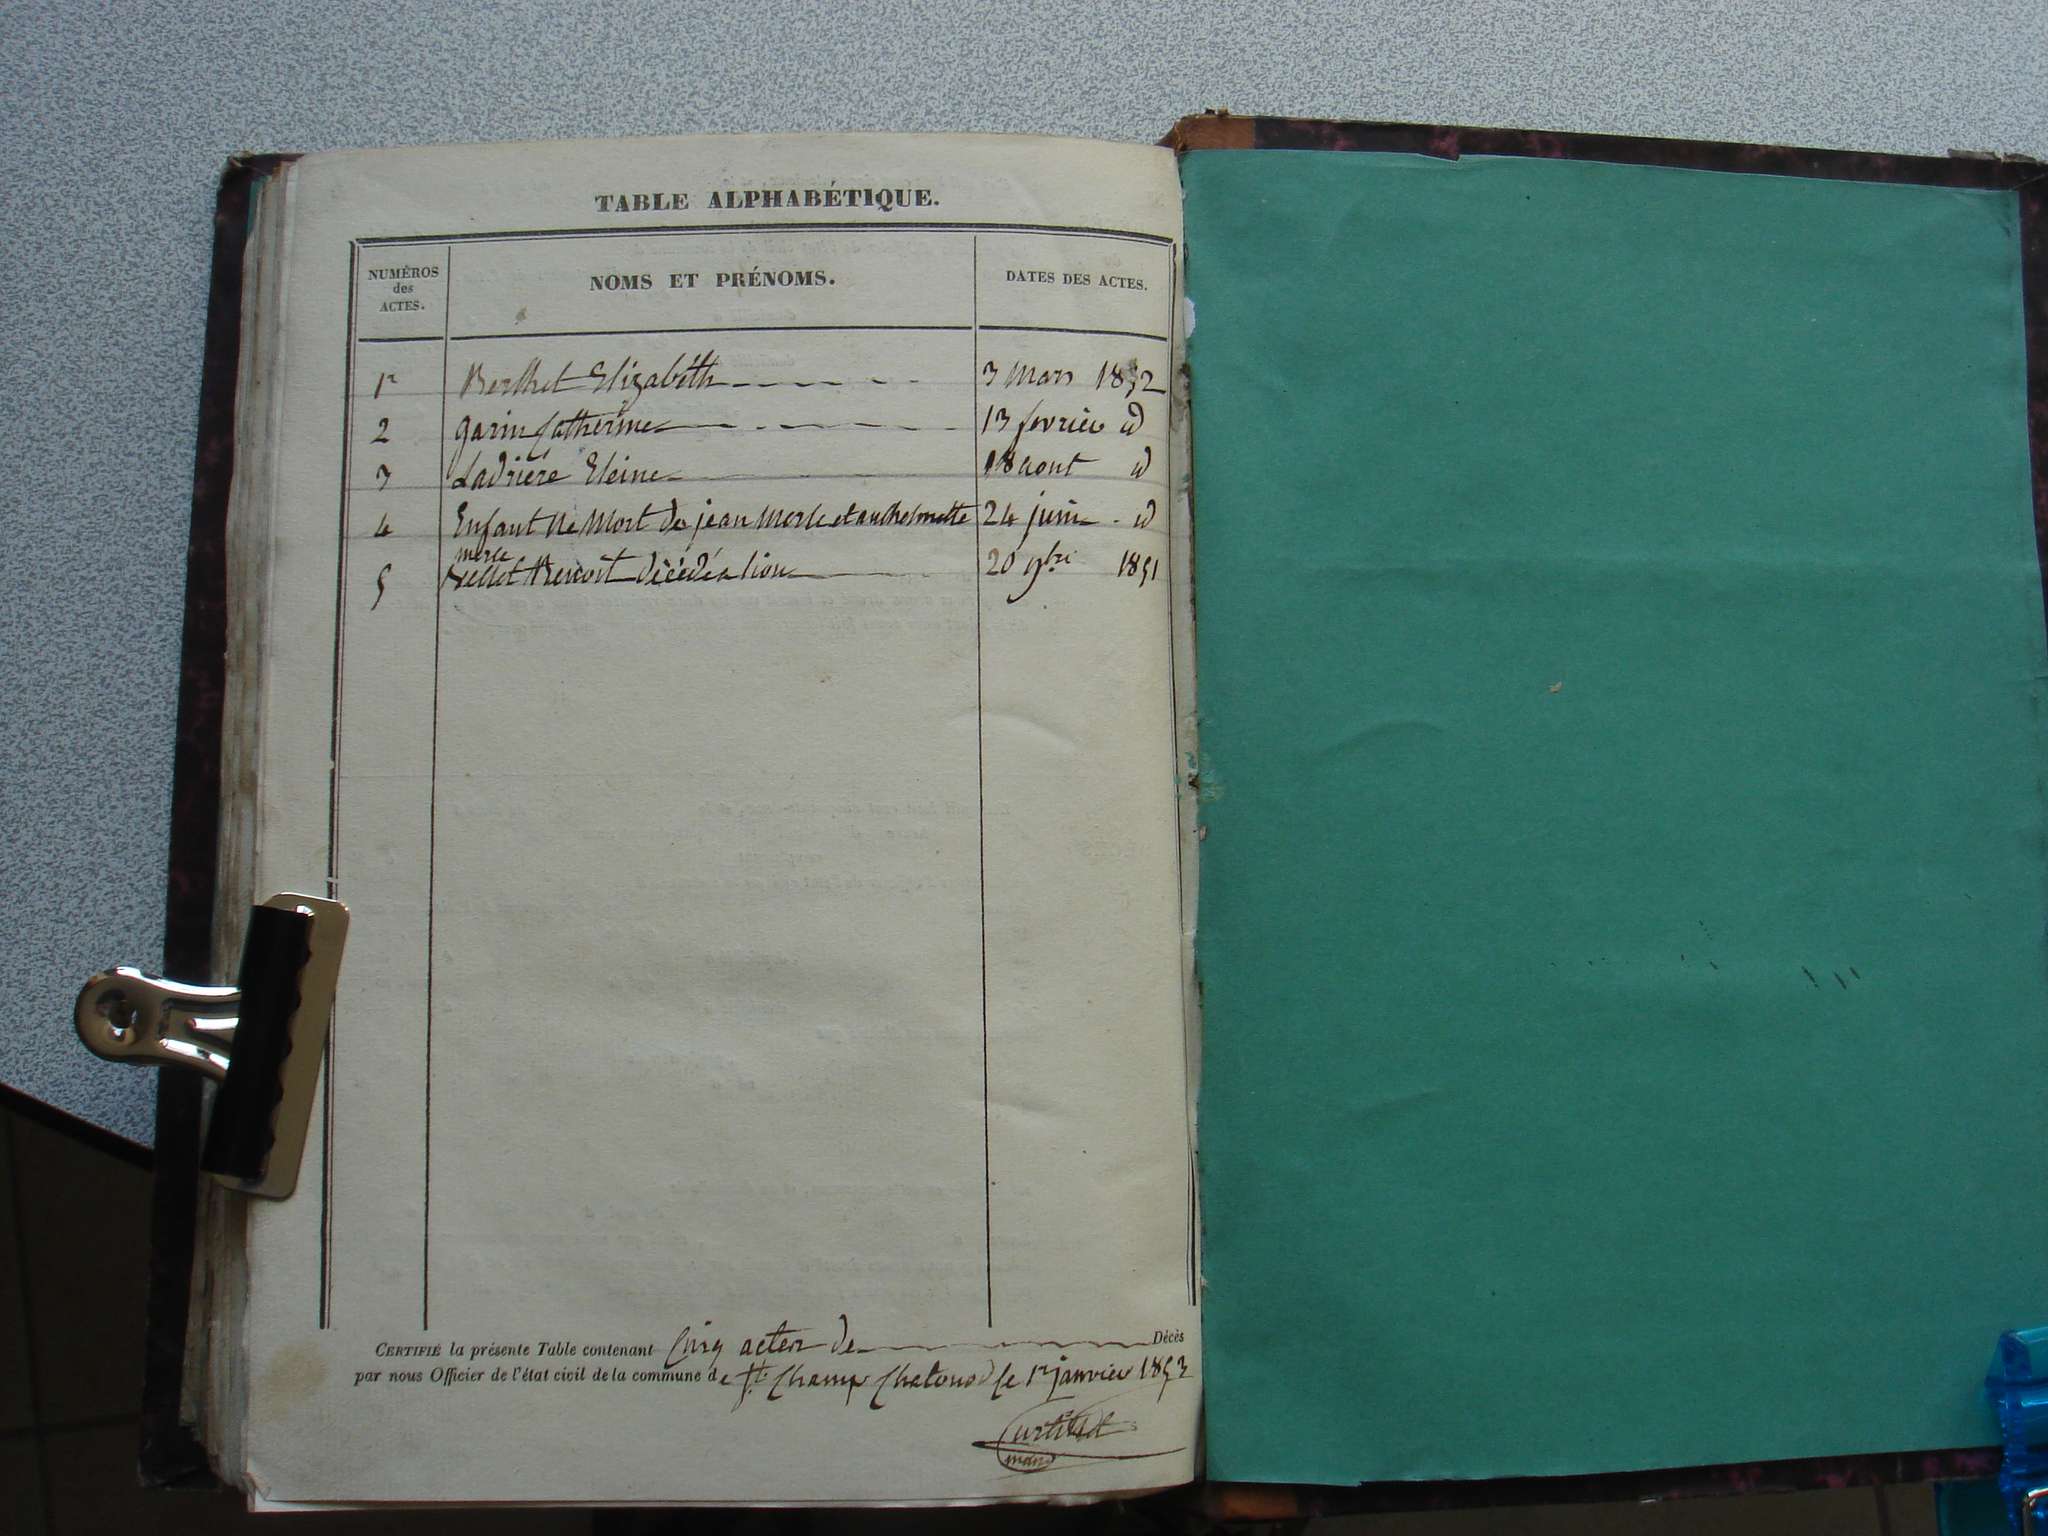 TABLE ALPHABÉTIQUE.
NUMÉROS des ACTES.
NOMS ET PRÉNOMS.
DATES DES ACTES.
1r Berthet Elizabéth 3 Mars 1852
2 garin Catherine 13 fevrier id
3 Ladriere Eleine 18 aout id
4 Enfant Ne Mort de jean Merle et 24 juin id
5 Benoit décédé a lion 20 9bre 1851
CERTIFIÉ la présente Table contenant Cinq actes de Décès
par nous Officier de l'état civil de la commune de St Champ Chatonod le 1r janvier 1853